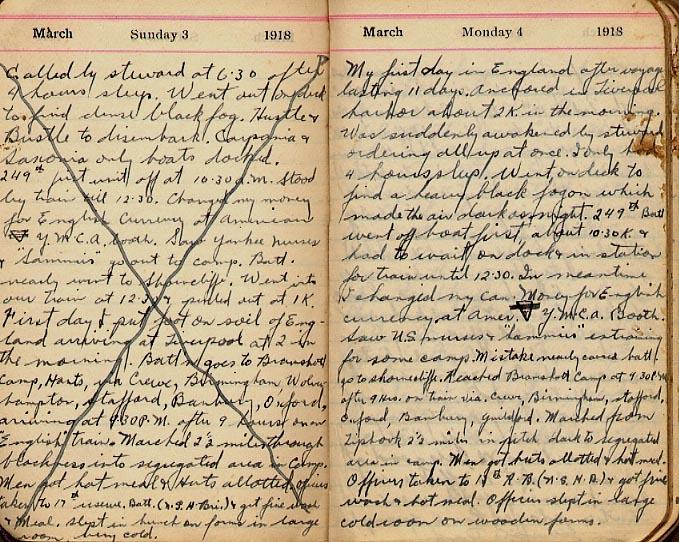 March Sunday 3 1918
Called by steward at 6.30 after
4 hours sleep. Went out on deck
to find dense black fog. Hustle &
Bustle to disembark. Carpania &
Saxonia only boats docked.
249th first unit off at 10.30 a.m. Stood
by train till 12.30. Changed my money
for English Currency at American
Y.M.C.A. booth. Saw Yankee nurses
& "Sammies" go out to camp. Batt.
nearly went to Shorncliffe. Went into
our train at 12.30 & pulled out at 1K.
First day I put foot on soil of Eng-
land arriving at Liverpool at 2 in
the morning. Battn goes to Bramshott
Camp, Hants, via Crewe, Birmingham, Wolver-
hampton, Stafford, Banbury, Oxford,
arriving at 9.30 P.M. after 9 hours on an
English train. Marched 2½ miles through
blackness into segregated area in Camp.
Men got hot meal & Huts allotted. Officers
taken to 17th reserve Batt. (N.S.H. Bri.) & got fine wash
& Meal. Slept in bunch on forms in large
room. Very cold.
March Monday 4 1918
My first day in England after voyage
lasting 11 days. Anchored in Liverpool
harbor about 2K in the morning.
Was suddenly awakened by steward
ordering all up at once. I only had
4 hours sleep. Went on deck to
find a heavy black fog on which
made the air dark as night. 249th Batt
went off boat first, about 10.30K &
had to wait on dock & in station
for train until 12.30. In meantime
I changed my Can. Money for English
currency at Amer. Y.M.C.A. Booth.
Saw U.S. nurses & "Sammies" entraining
for some camp. Mistake nearly caused batt.
go to Shorncliffe. Reached Bramshott Camp at 9.30 P.M.
after 9 Hrs. on train via. Crewe, Birmingham, Stafford,
Oxford, Banbury, Guildford. Marched from
Liphook 2½ miles in pitch dark to segregated
area in camp. Men got huts allotted & hot meal.
Officers taken to 17th R.B. (N.S.H.R.) & got fine
wash & hot meal. Officers slept in large
cold room on wooden forms.